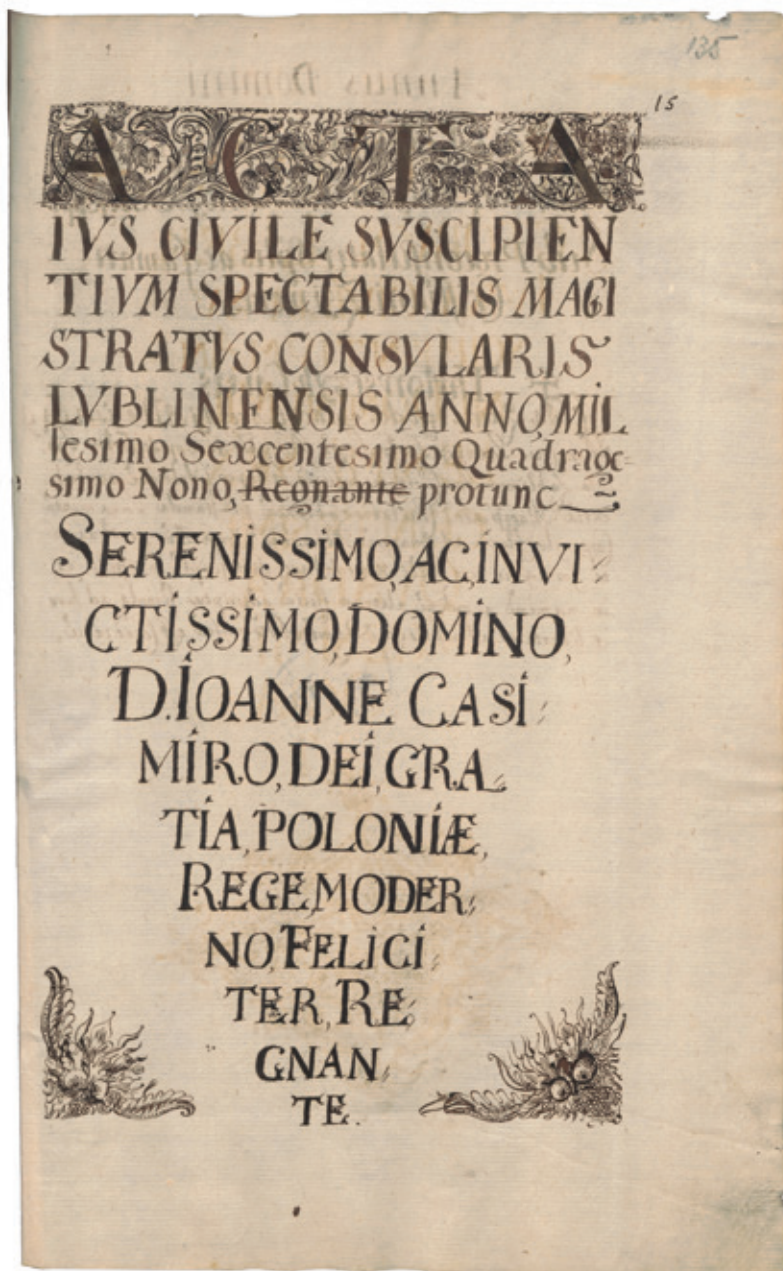 135
15
ACTA
IVS CIVILE SVSCIPIEN
TIVM SPECTABILIS MAGI
STRATVS CONSVLARIS
LVBLINENSIS ANNO, MIL
lesimo Sexcentesimo Quadrage
simo Nono, Regnante protunc
SERENISSIMO, AC, INVI
CTISSIMO, DOMINO,
D. IOANNE CASI
MIRO, DEI, GRA
TIA, POLONIÆ,
REGE, MODER
NO, FELICI
TER, RE
GNAN
TE.